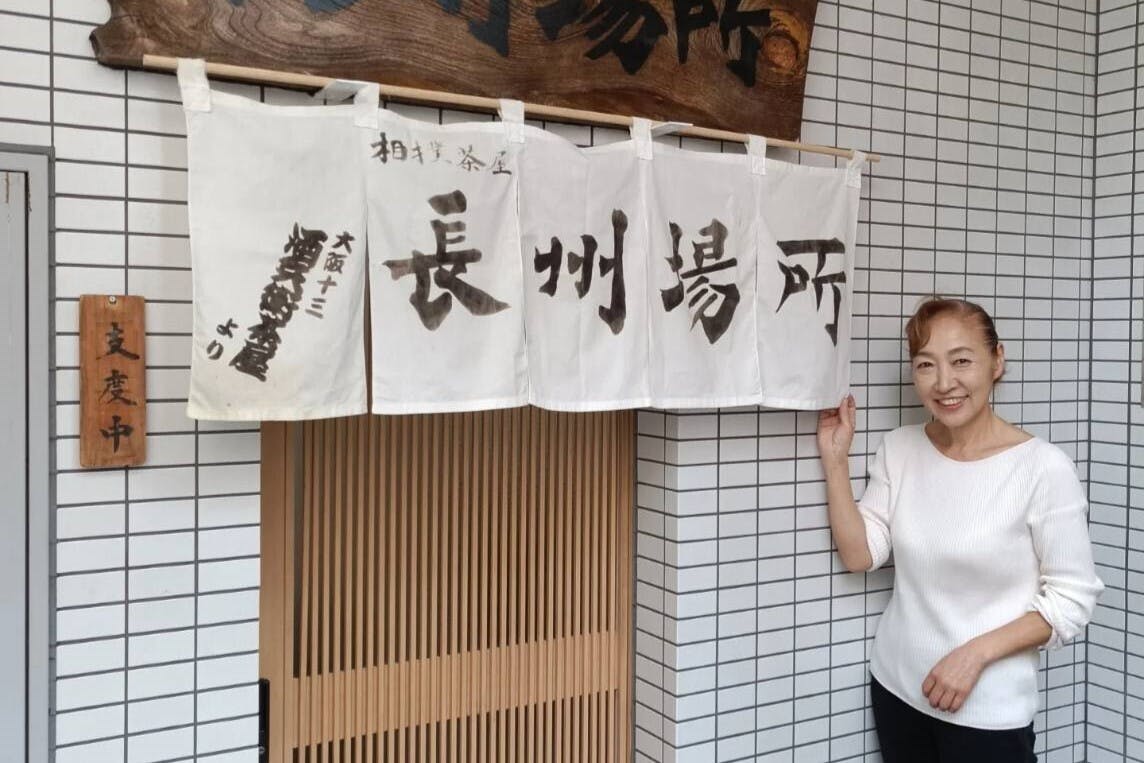 場所
相撲茶屋
長州場所
大阪十三
より
支度中